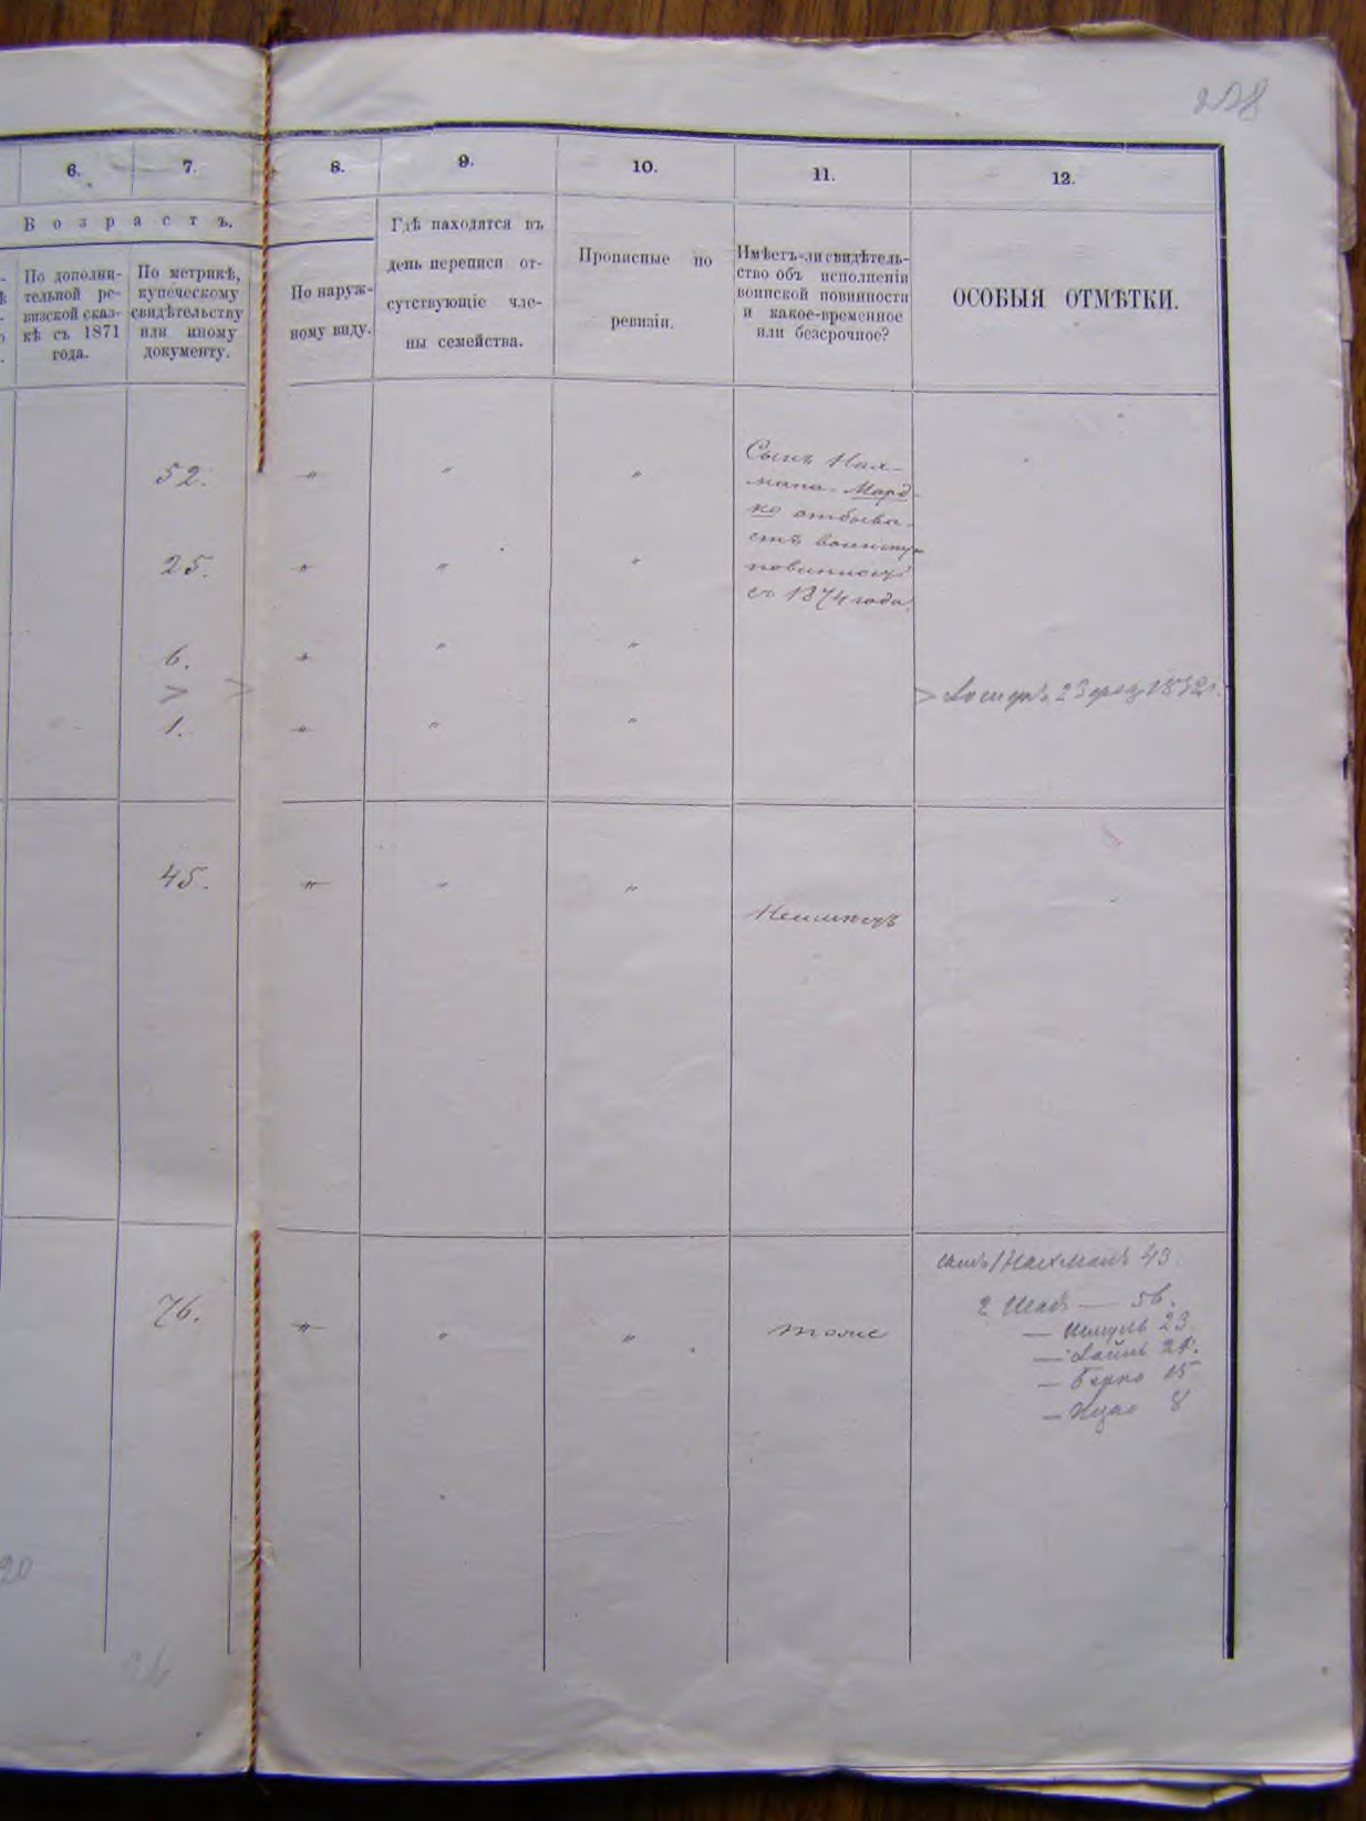 6. 7. 8. 9. 10. 11. 12.
Возрастъ.
По дополни-
тельной ре-
визской сказ-
кѣ съ 1871
года.
По метрикѣ,
купеческому
свидѣтельству
или иному
документу.
По наруж-
ному виду.
Гдѣ находятся въ
день переписи от-
сутствующіе чле-
ны семейства.
Прописные по
ревизіи.
Имѣетъ-ли свидѣтель-
ство объ исполненіи
воинской повинности
и какое-временное
или безсрочное?
ОСОБЫЯ ОТМѢТКИ.
52. " " "
Сынъ Нах-
мана - Морд-
ко отбыва-
етъ воинскую
повинность
съ 1874 года.
25. " " "
6. " " "
> >
1. " " "
45. " " "
Неимѣетъ
76. " " "
тоже
самъ / Нахманъ 43
2
— 23
— 
— Берко 15
— 8
20